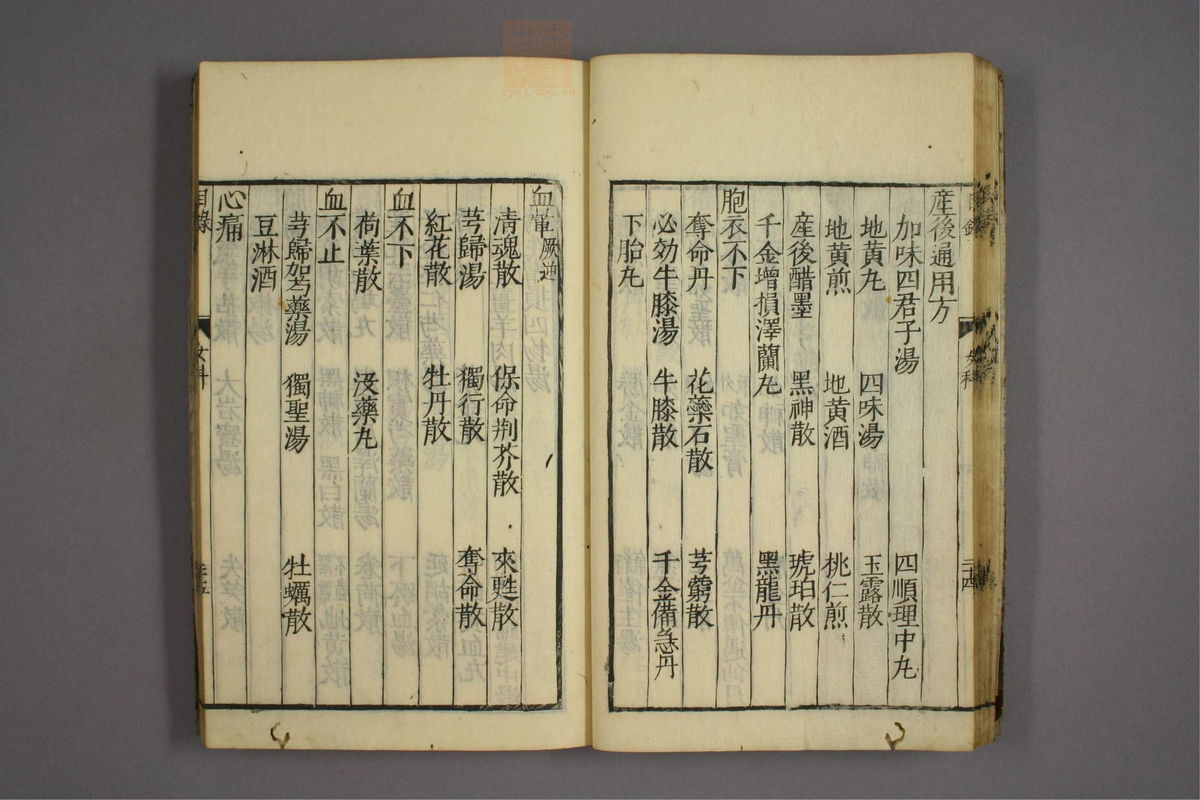 産後通用方
加味四君子湯 四順理中丸
地黄丸 四味湯 玉露散
地黄煎 地黄酒 桃仁煎
産後醋墨 黑神散 琥珀散
千金增損澤蘭丸 黑龍丹
胞衣不下
奪命丹 花藥石散 芎藭散
必効牛膝湯 牛膝散 千金備急丹
下胎丸
血暈厥逆
清魂散 保命荆芥散 來甦散
芎歸湯 獨行散 奪命散
紅花散 牡丹散
血不下
荷葉散 沒藥丸
血不止
芎歸芍藥湯 獨聖湯 牡蠣散
豆淋酒
心痛
目錄 女科